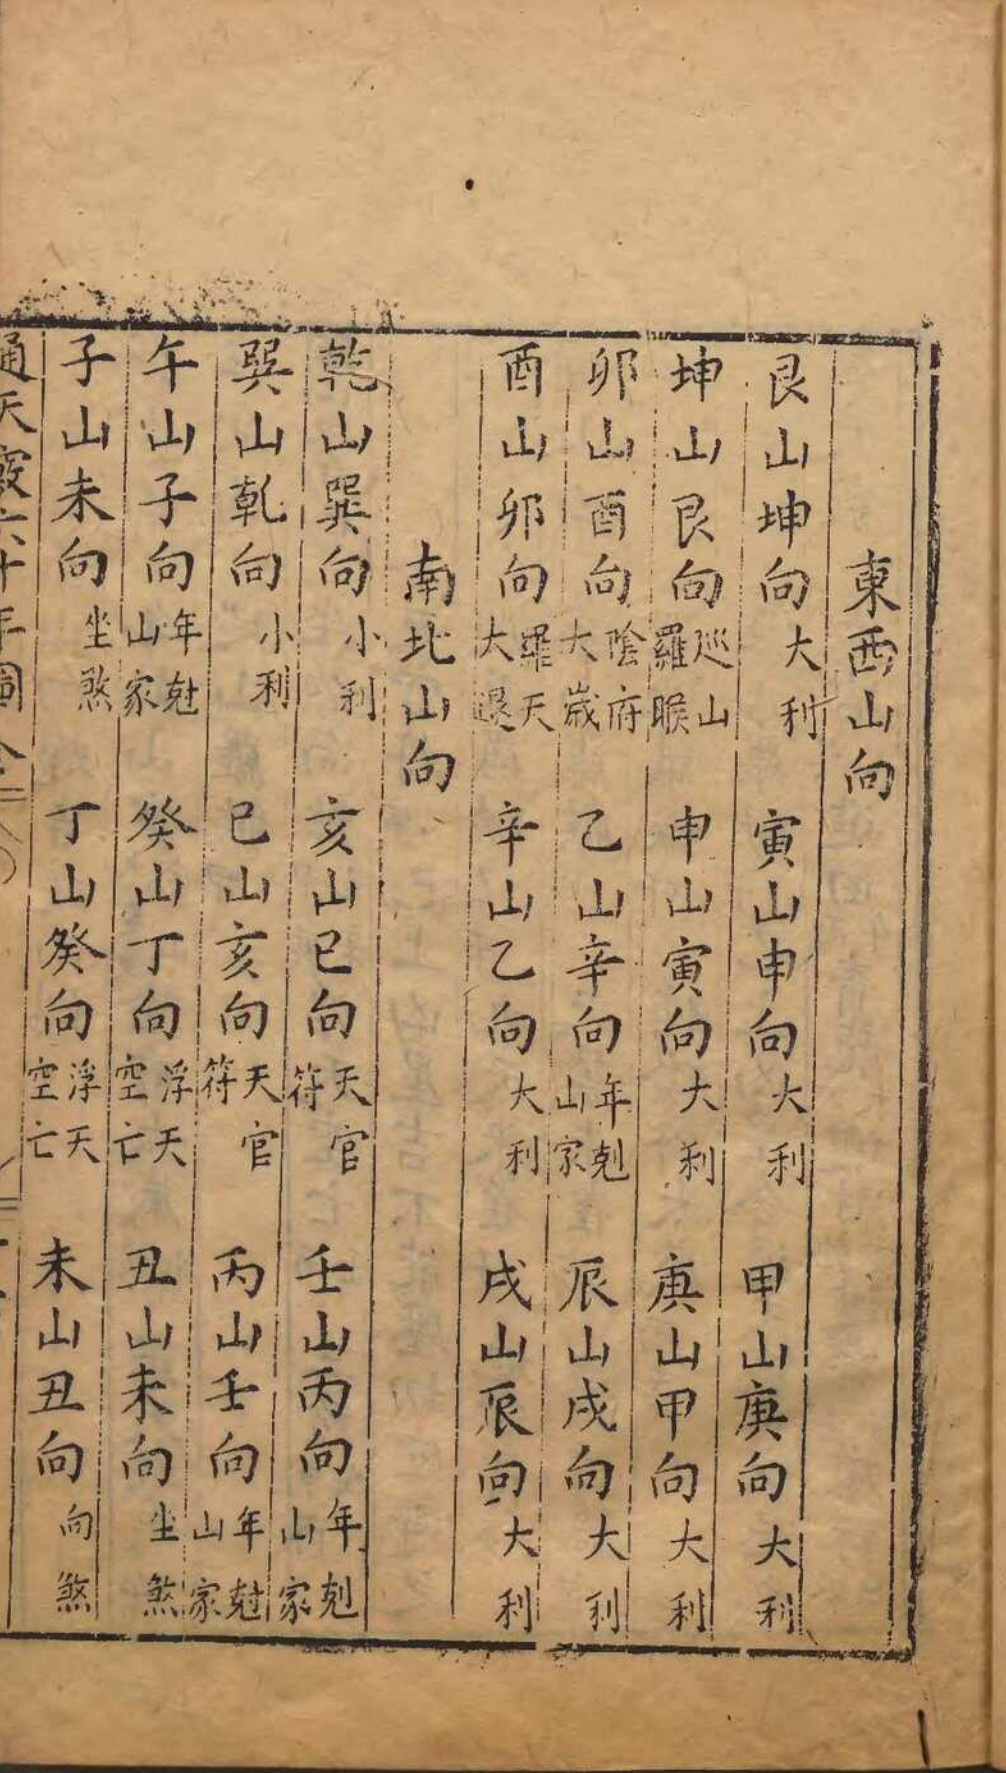 東西山向
艮山坤向大利　寅山申向大利　甲山庚向大利
坤山艮向巡山羅睺　申山寅向大利　庚山甲向大利
卯山酉向陰府大歲　乙山辛向年剋山家　辰山戌向大利
酉山卯向羅天大退　辛山乙向大利　戌山辰向大利
南北山向
乾山巽向小利　亥山巳向天官符　壬山丙向年剋山家
巽山乾向小利　巳山亥向天官符　丙山壬向年尅山家
午山子向年尅山家　癸山丁向浮天空亡　丑山未向坐煞
子山未向坐煞　丁山癸向浮天空亡　未山丑向向煞
通天竅六十年圖